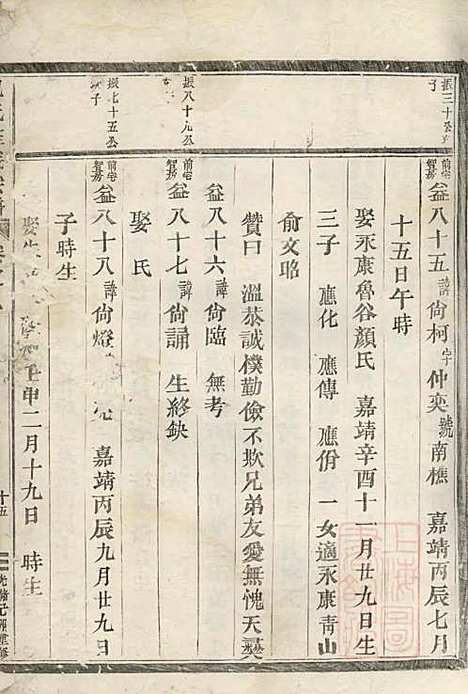 振三十公
子
前宅智房益八十五諱尙柯字仲奕號南樵 嘉靖丙辰七月
十五日午時
娶永康魯谷顏氏 嘉靖辛酉十一月廿九日生
三子 應化 應傳 應佾 一女適永康靑山
俞文昭
贊曰 溫恭誠樸勤儉不欺兄弟友愛無愧天
益八十六諱尙臨 無考
振八十九公
子
前宅智房益八十七諱尙誦 生終缺
娶氏
振七十五公
次子
前宅智房益八十八諱尙燈 嘉靖丙辰九月廿九日
子時生
娶 壬申二月十九日 時生
十五
光緒元 重修